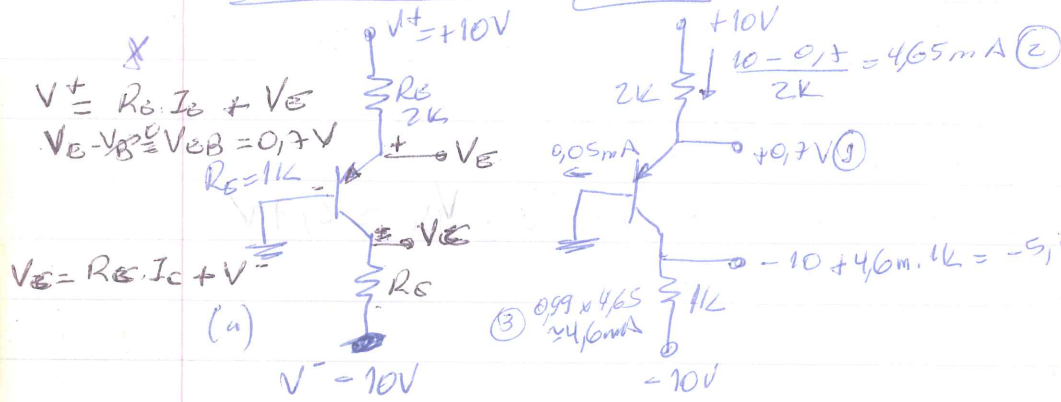 V⁺=+10V
RE
2K
V⁺= RE.IE + VE
VE-VB⁰=VEB=0,7V
+
VE
RC=1K
-
VC
VC= RC.IC + V⁻
RC
(a)
V⁻-10V
+10V
10-0,7
2K
=4,65mA ②
2K
0,05mA
+0,7V ①
-10+4,6m.1K = -5,
③ 0,99x4,65
≃4,6mA
1K
-10V